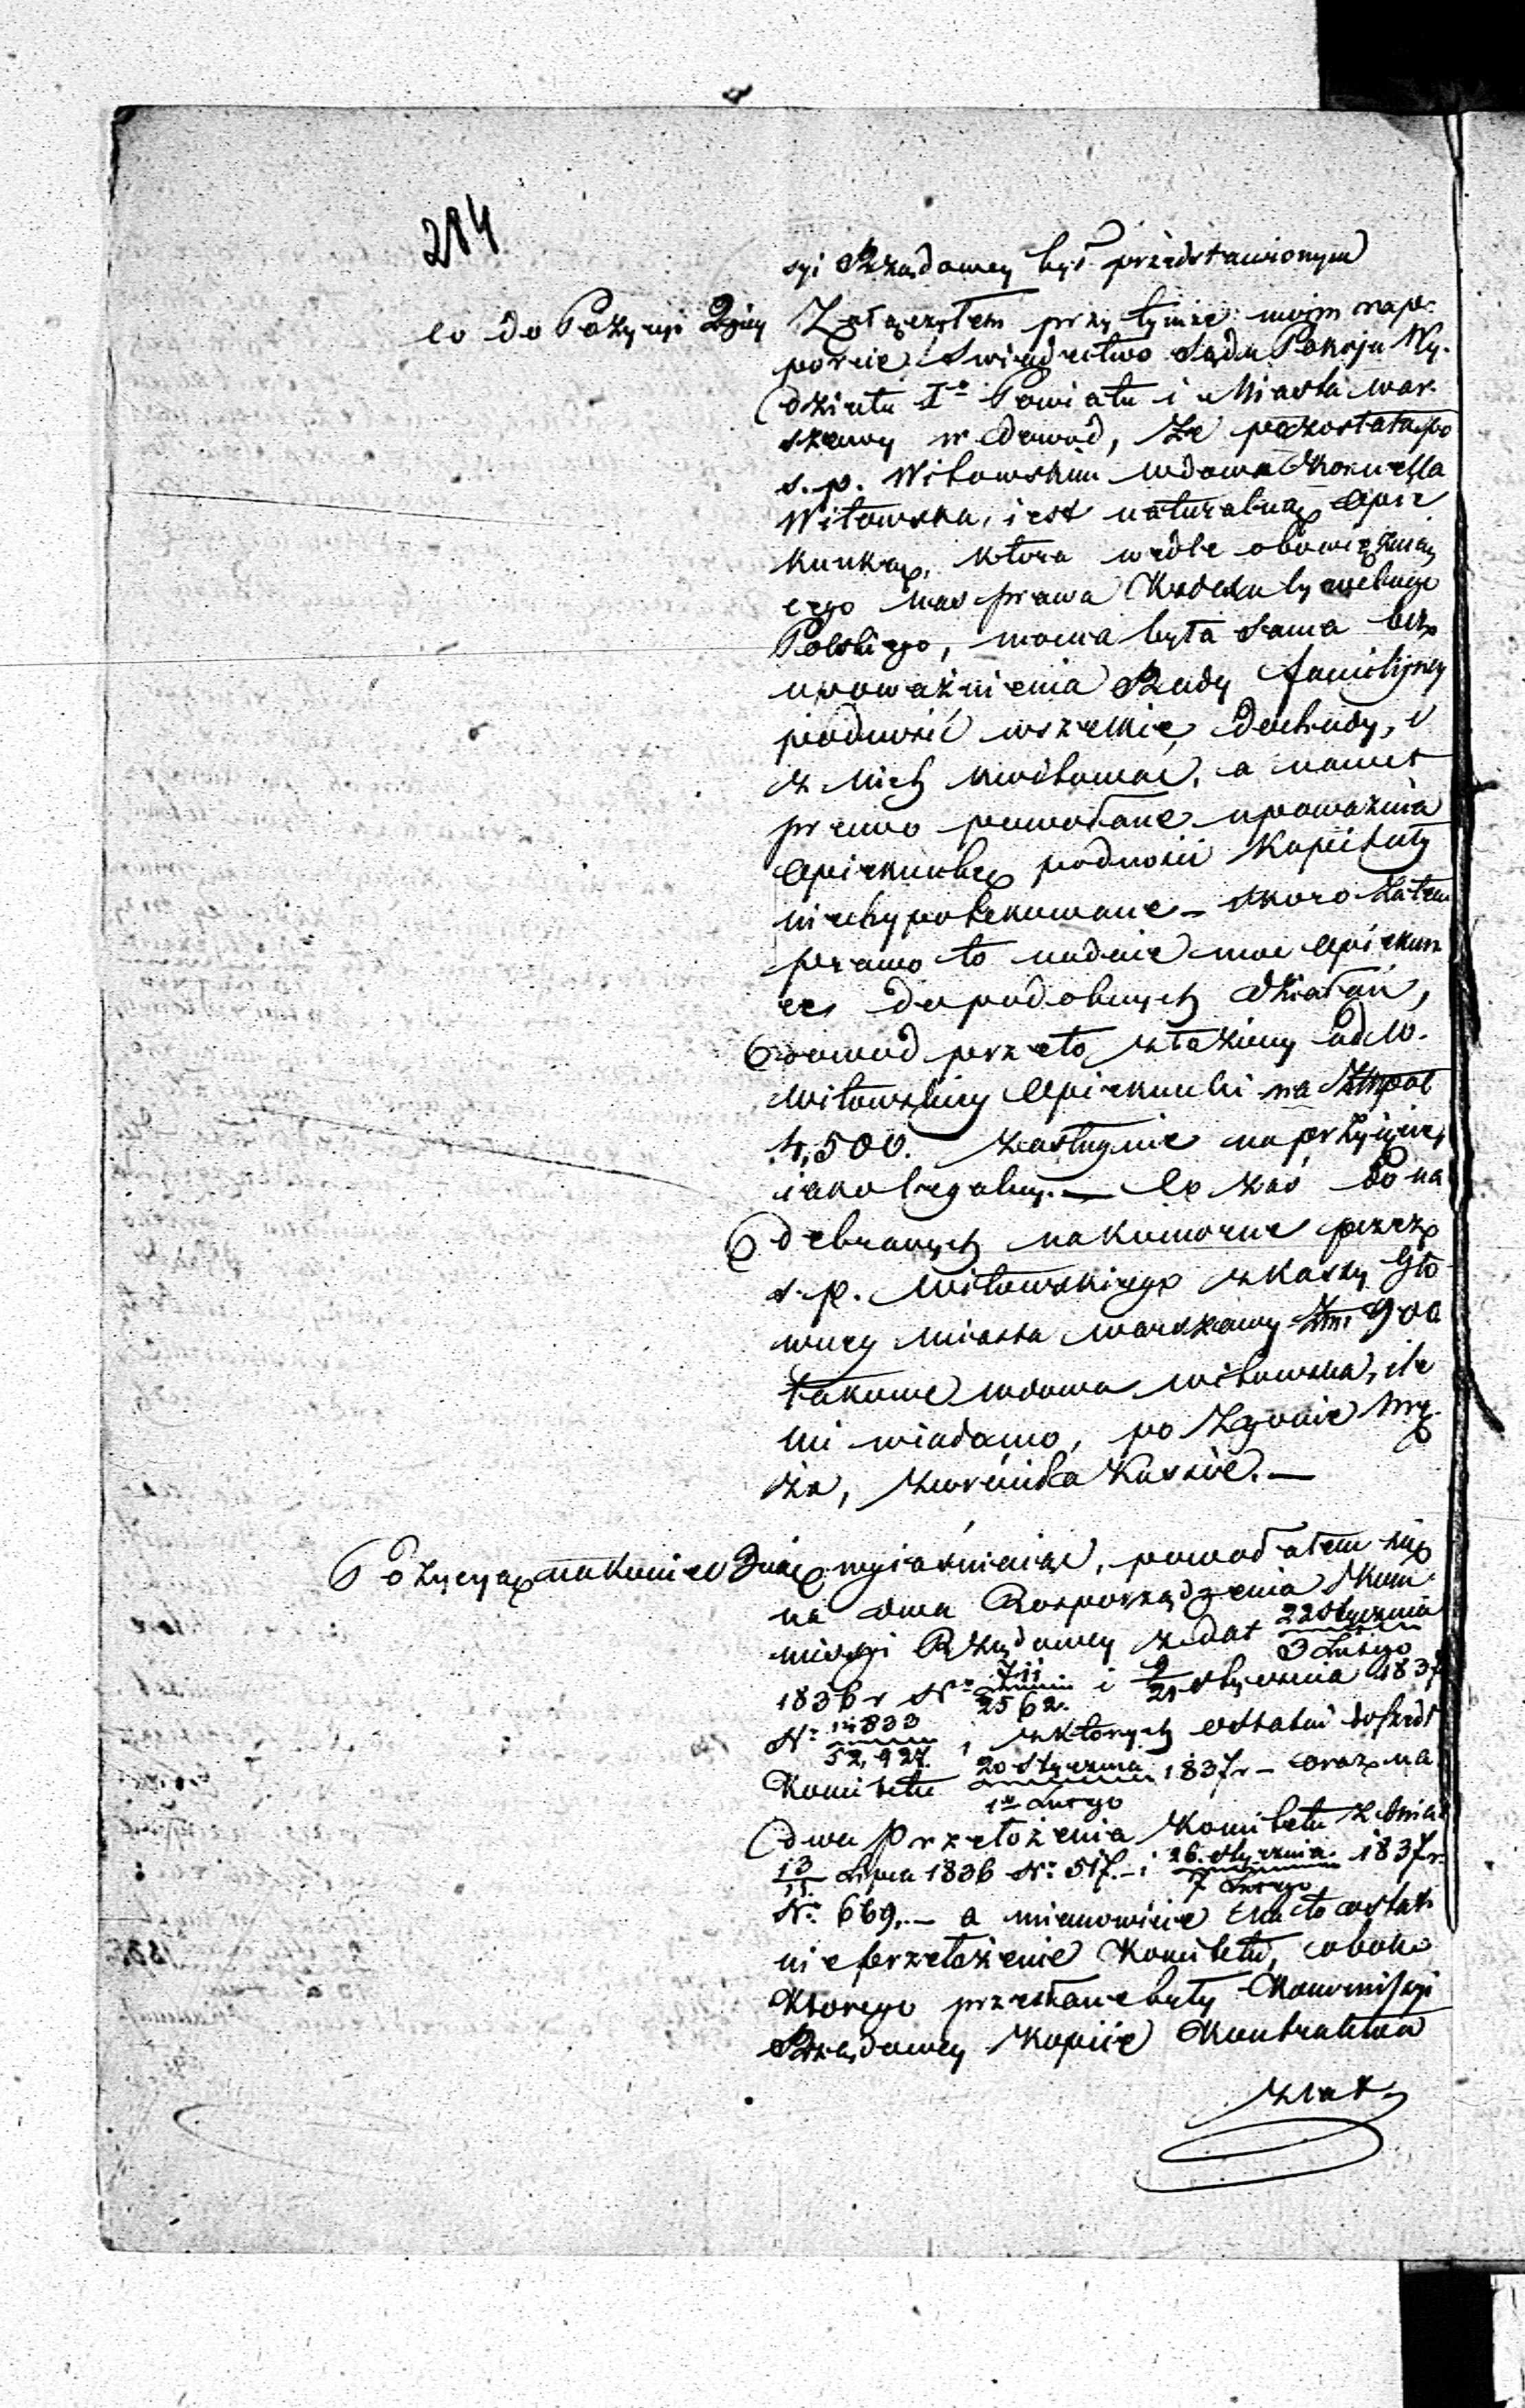 284
syi Rządowey był przedstawionym
co do Pozycyi 2giey Załączyłem przy tymże moim rapo-
porcie Swiadectwo Sądu Pokoju Wy-
działu Igo Powiatu i Miasta War-
szawy w dowód, że pozostała po
s. p. Witowskim wdowa Kornella
Witowska, iest naturalną Opie
kunką, ktora wedle obowiązuią
cego nas prawa Kodexu Cywilnego
Polskiego, mocna była sama bez
upoważnienia Rady familijney
podnosić wszelkie dochody, i
z nich kwitować, a nawet
prawo powołane upoważnia
Opiekunkę podnosić Kapitały
niehypotekowane – skoro zatem
prawo to nadaie moc Opiekun
ce, do podobnych działań,
Dowod przeto złożony od W.
Witowskiey Opiekunki na Złtpol
4,500. zasługuie na przyięcie,
iako legalny. — Co zaś do na
debranych na komorne przez
s. p. Witowskiego z Kassy Głó-
wney Miasta Warszawy Złtn. 900
takowe wdowa Witowska, ile
mi wiadomo, po zgonie mę-
ża, zwróciła Kassie. —
Pozycyą nakoniec 3cią wyiaśniaiąc, powołałem się
na dwa Rosporządzenia Kom-
missyi Rządowey z dat 22 Stycznia
3 Lutego
1836 r Nr 711 i 9 Stycznia 1837
2562. 21
Nr 14833, z ktorych ostatni doszedł
52,927.
Komitetu 20 Stycznia 1837 r – oraz na
1go Lutego
dwa przełożenia Komitetu z dnia
13 Lipca 1836 Nr 517. – i 26. Stycznia 1837 r.
11 7 Lutego
Nr 669. – a mianowicie na to ostat-
nie przełożenie Komitetu, obok
ktorego przesłane były Kommissyi
Rządowey Kopiie Kontraktów
z lat